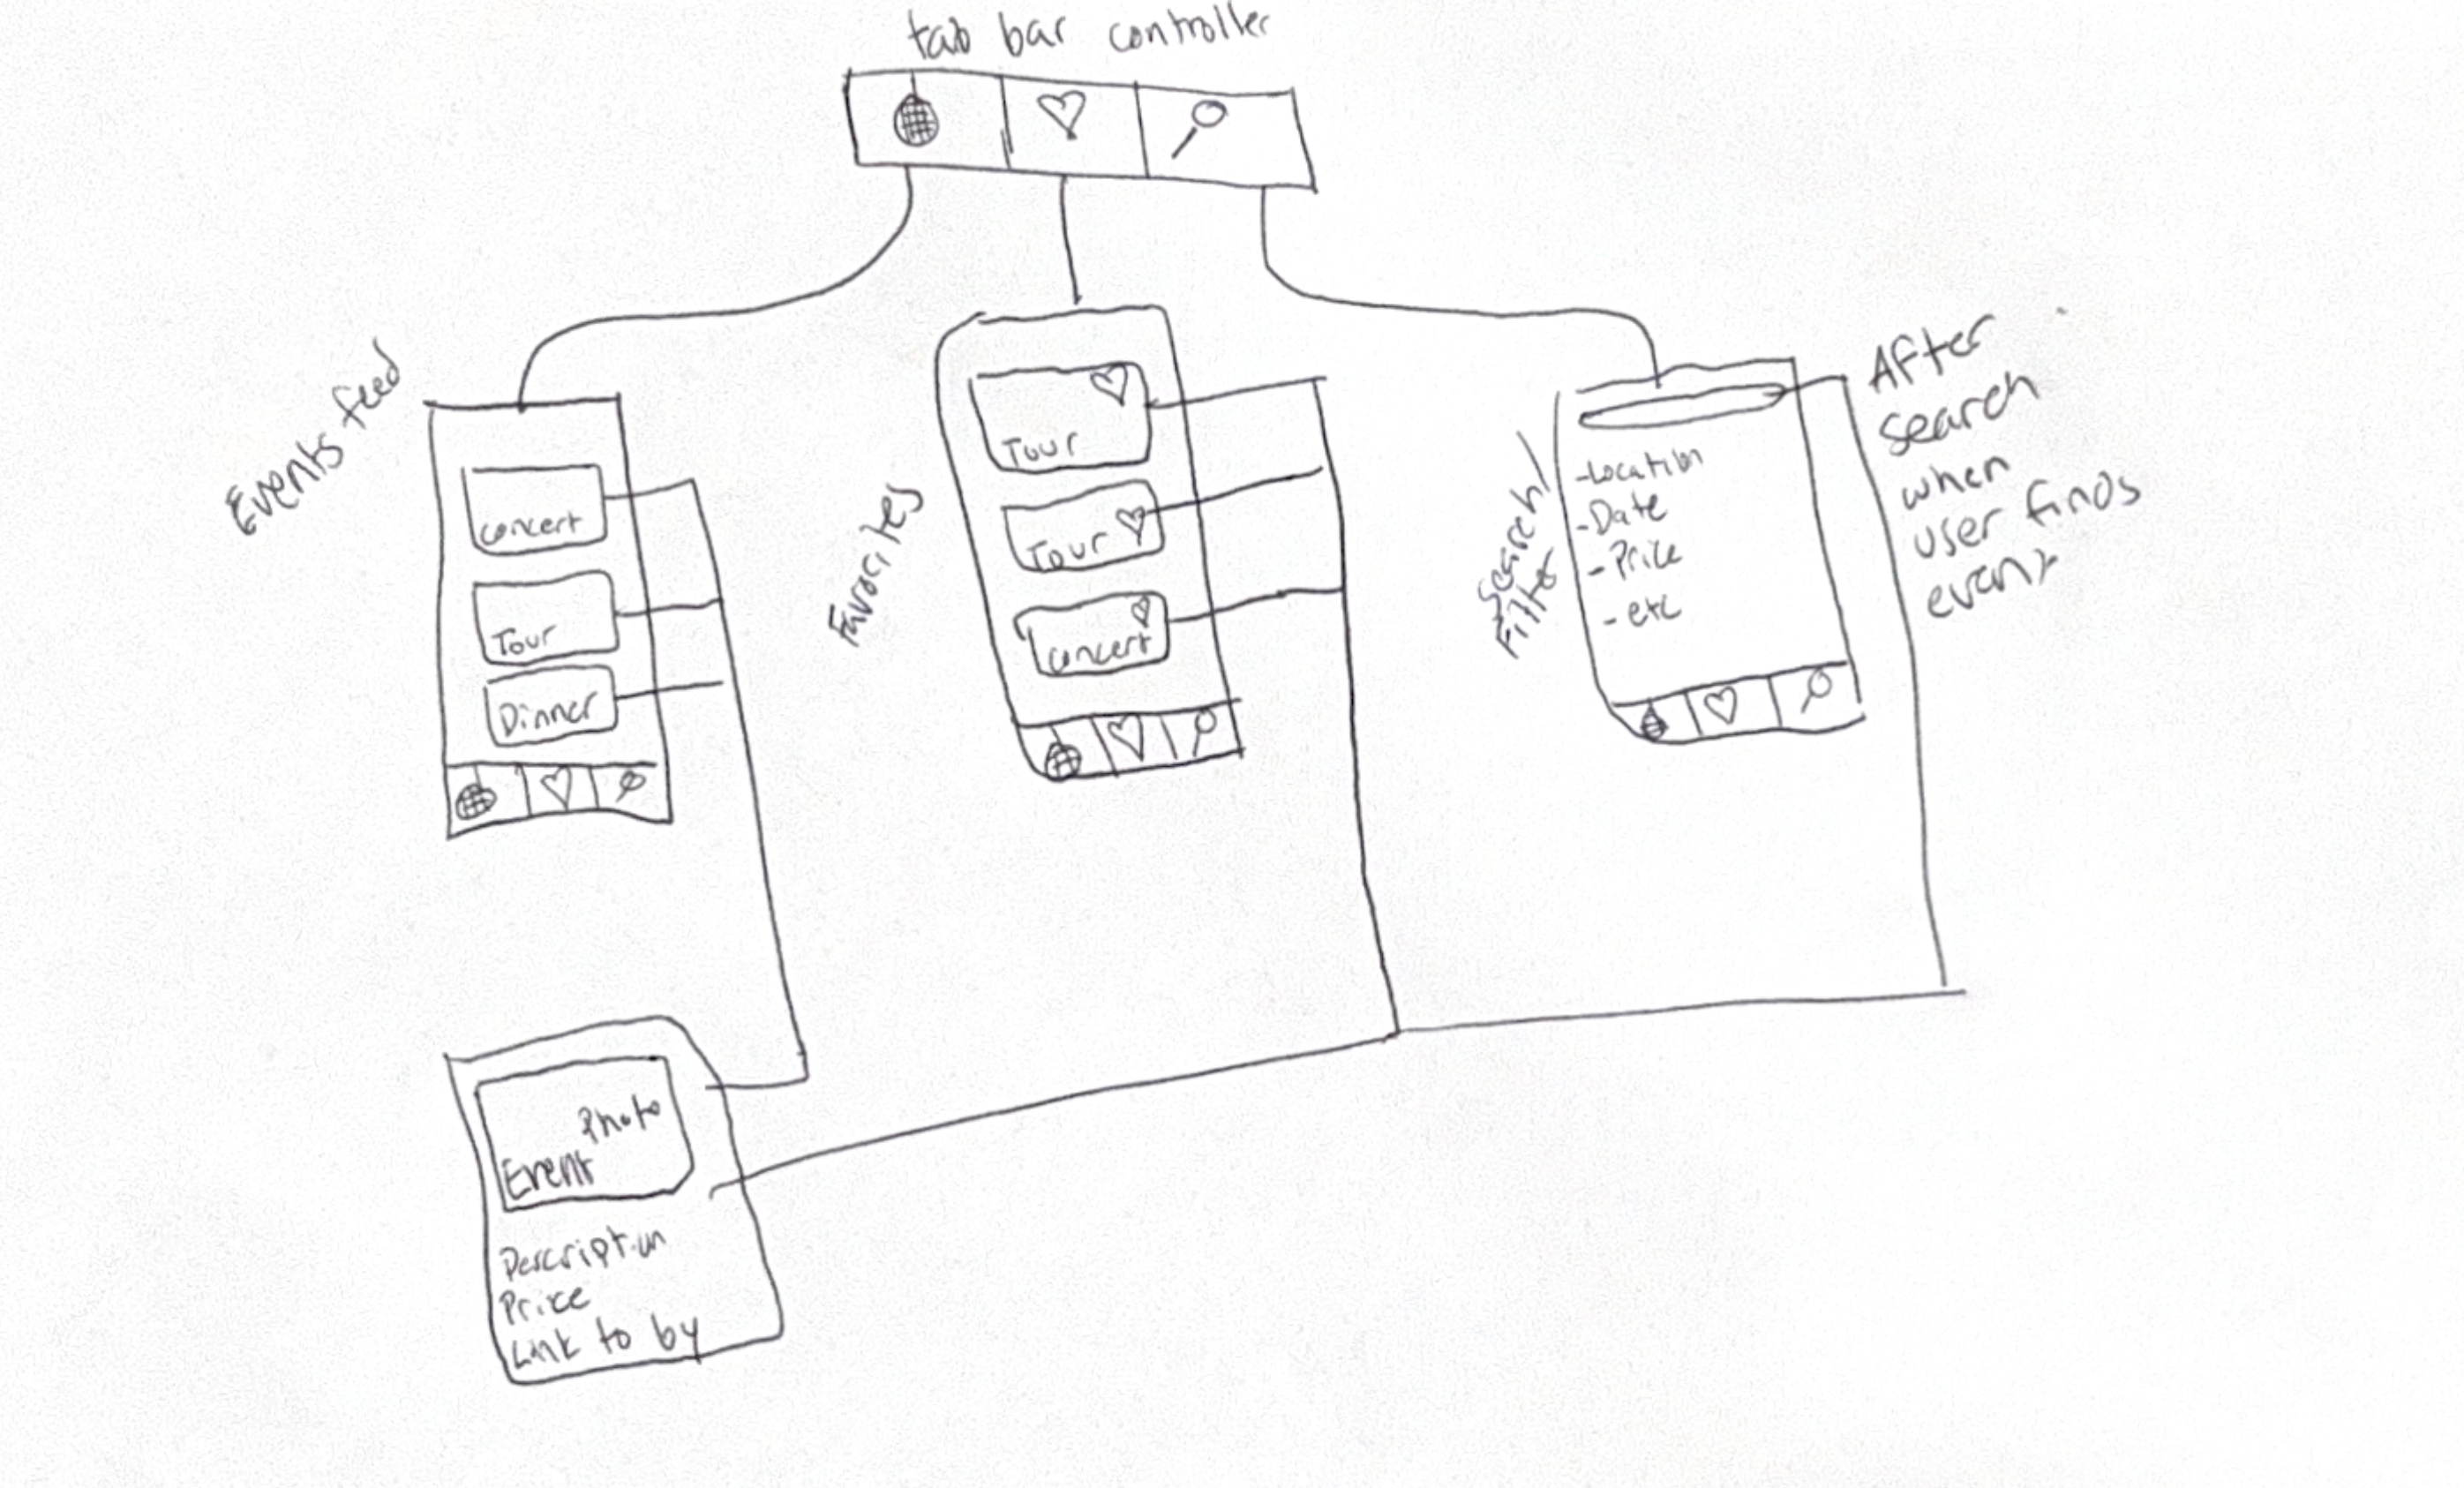 tab bar controller
Events feed
concert
Tour
Dinner
Favorites
Tour
Tour
concert
Search/
Filter
-Location
-Date
-Price
-etc
After
search
when
user finds
event
Photo
Event
Description
Price
Link to by